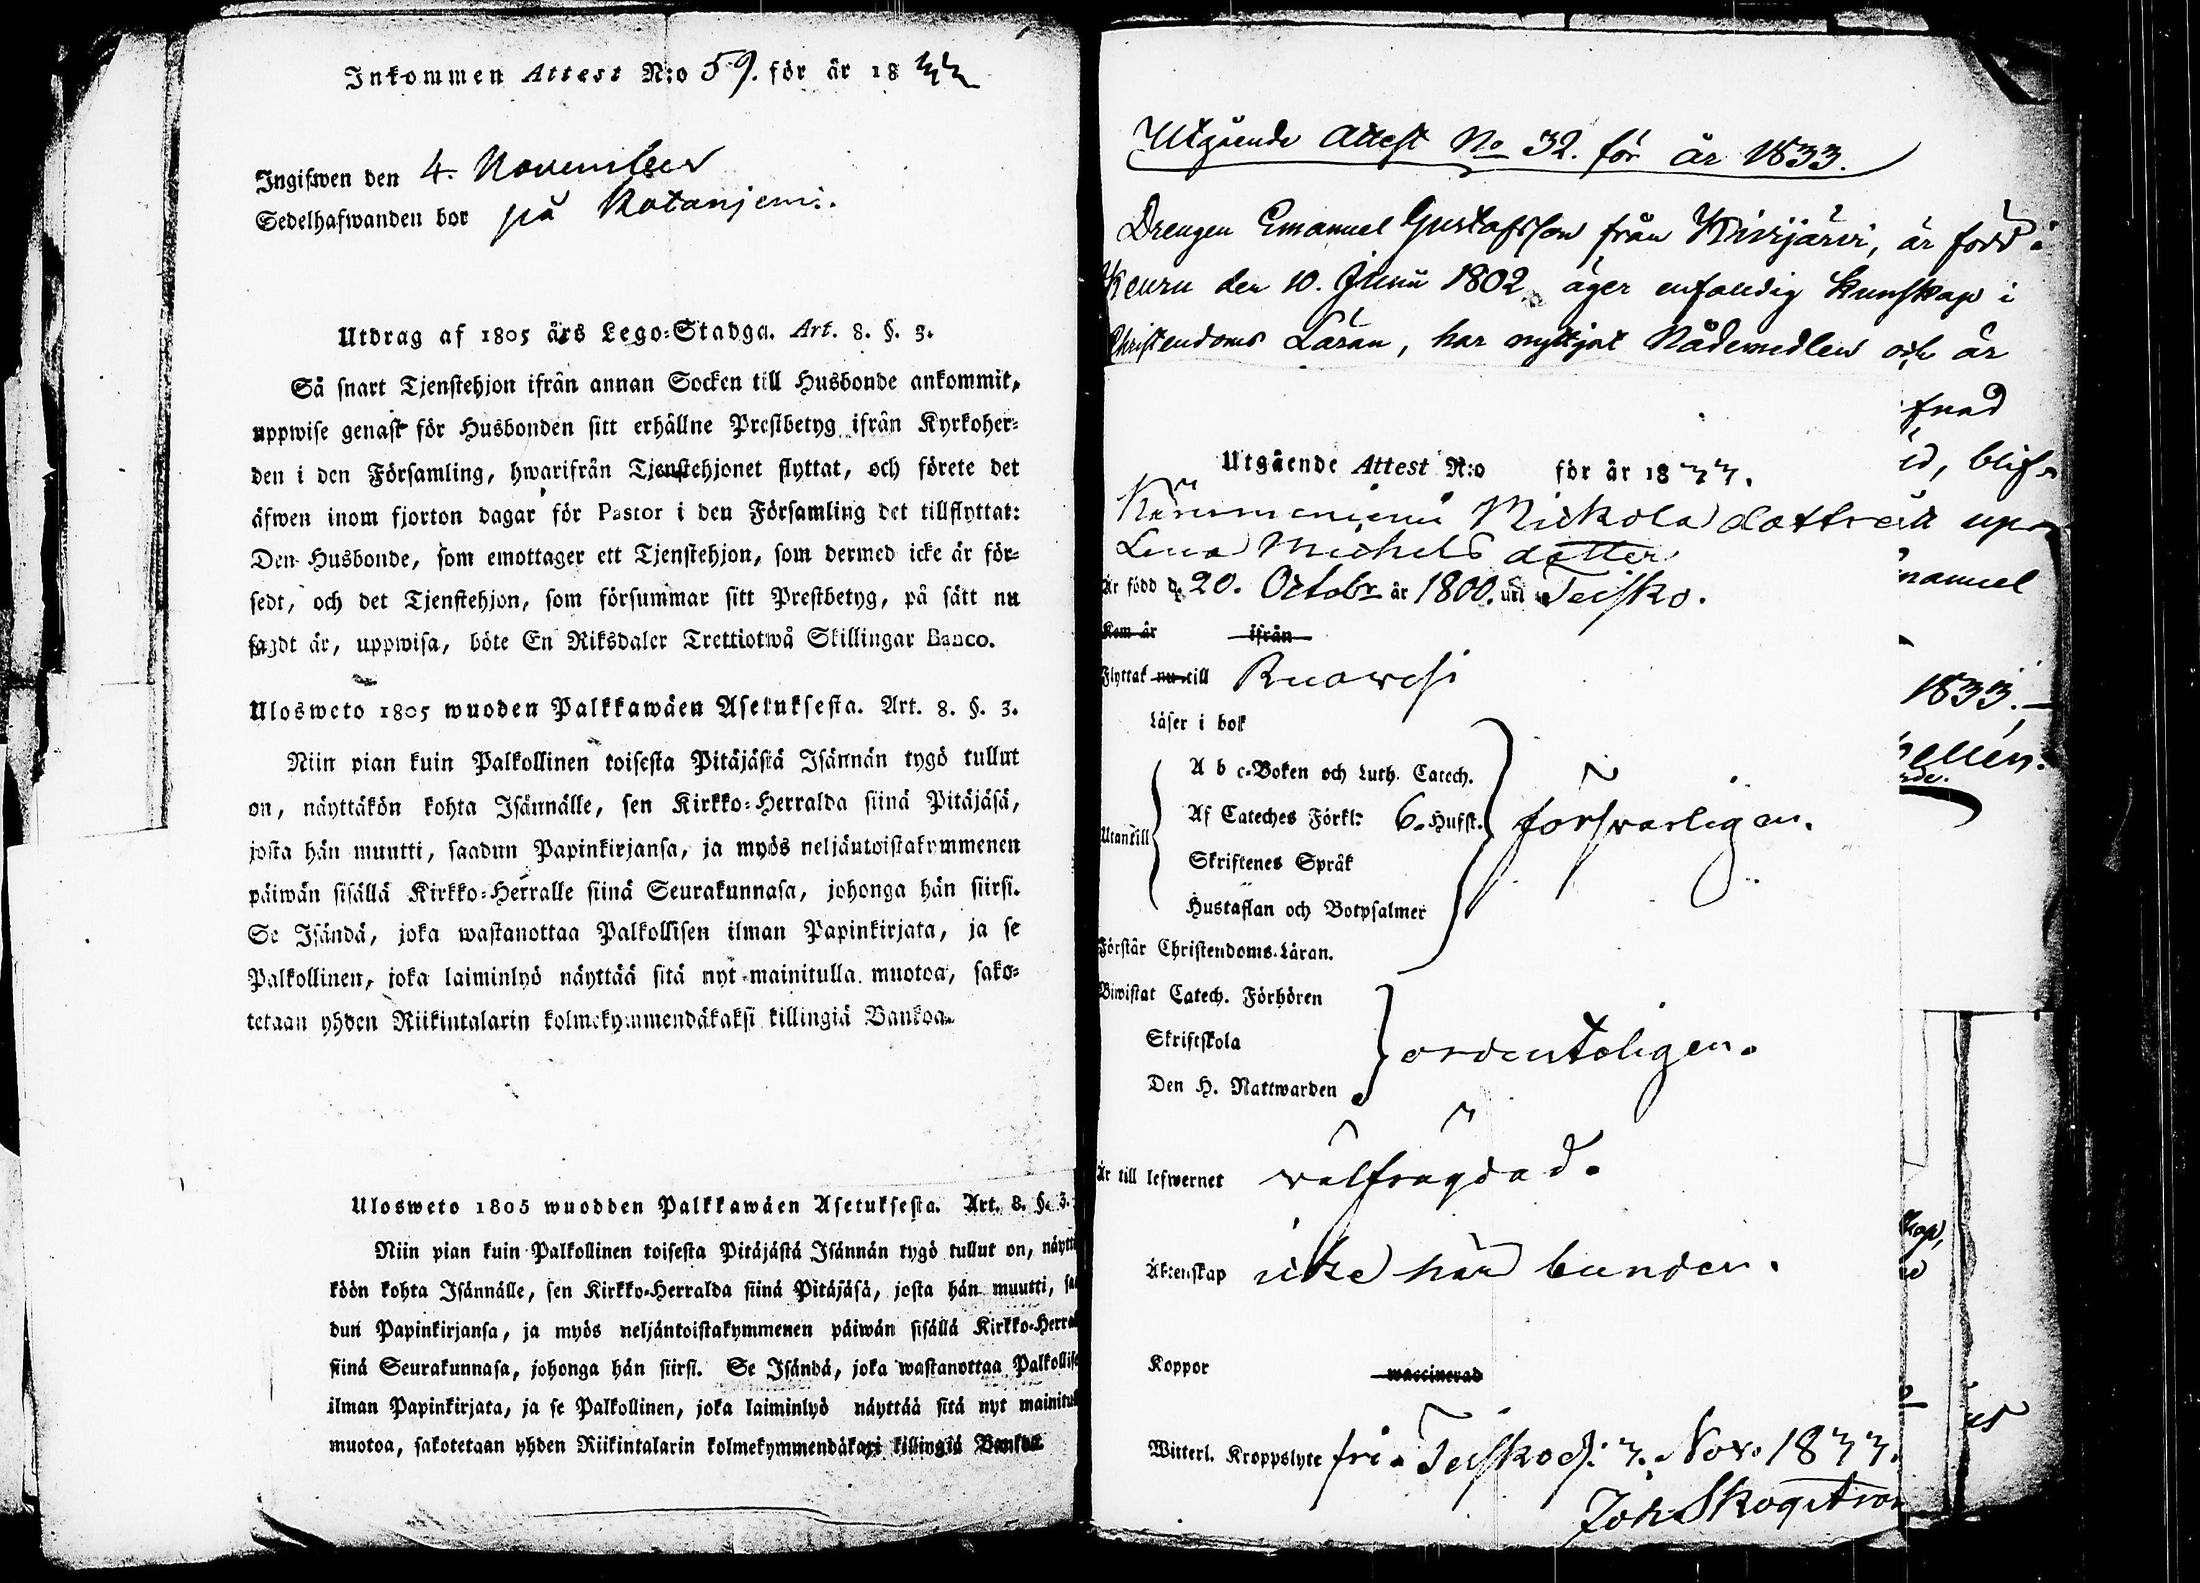 Inkommen Attest N:o 59. för år 1833
Ingifwen den 4. November
Sedelhafwanden bor på Kotanjemi.
Utdrag af 1805 års Lego-Stadga. Art. 8. §. 3.
Så snart Tjenstehjon ifrån annan Socken till Husbonde ankommit,
uppwise genast för Husbonden sitt erhållne Prestbetyg ifrån Kyrkoher-
den i den Församling, hwarifrån Tjenstehjonet flyttat, och förete det
äfwen inom fjorton dagar för Pastor i den Församling det tillflyttat:
Den Husbonde, som emottager ett Tjenstehjon, som dermed icke är för-
sedt, och det Tjenstehjon, som försummar sitt Prestbetyg, på sätt nu
sagdt är, uppwisa, böte En Riksdaler Trettiotwå Skillingar Banco.
Ulosweto 1805 wuoden Palkkawäen Asetuksesta. Art. 8. §. 3.
Niin pian kuin Palkollinen toisesta Pitäjästä Isännän tygö tullut
on, näyttäkön kohta Isännälle, sen Kirkko-Herralda siinä Pitäjäsä,
josta hän muutti, saadun Papinkirjansa, ja myös neljäntoistakymmenen
päiwän sisällä Kirkko-Herralle siinä Seurakunnasa, johonga hän siirsi.
Se Isändä, joka wastanottaa Palkollisen ilman Papinkirjata, ja se
Palkollinen, joka laiminlyö näyttää sitä nyt mainitulla muotoa, sako-
tetaan yhden Riikintalarin kolmekymmendäkaksi killingiä Bankoa.
Ulosweto 1805 wuodden Palkkawäen Asetuksesta. Art. 8. §. 3.
Niin pian kuin Palkollinen toisesta Pitäjästä Isännän tygö tullut on, näytt
köön kohta Isännälle, sen Kirkko-Herralda siinä Pitäjäsä, josta hän muutti, saa
dun Papinkirjansa, ja myös neljäntoistakymmenen päiwän sisällä Kirkko-Herral
siinä Seurakunnasa, johonga hän siirsi. Se Isändä, joka wastanottaa Palkollise
ilman Papinkirjata, ja se Palkollinen, joka laiminlyö näyttää sitä nyt mainitul
muotoa, sakotetaan yhden Riikintalarin kolmekymmendäkaxi killingiä Bankoa
Utgående Attest No 32. för år 1833.
Drengen Emanuel Gustafsson från Kivijärvi, är född i
Keuru den 10. Junii 1802, äger enfaldig kunskap i
Christendoms Läran, har nyttjat Nådemedlen och är
fnad
id, blif
Utgående Attest N:o för år 1833.
Mickola dottren
Lena Michels dotter
är född d. 20. Octobr år 1800. uti Teisko.
nanuel
Kom år ifrån
Flyttat nu till Ruowesi
1833.
Läser i bok
ellén.
A b c-Boken och Luth. Catech.
Utantill Af Cateches Förkl: 6. Hufst. försvarligen.
Skriftenes Språk
Hustaflan och Botpsalmer
Förstår Christendoms-Läran.
Biwistat Catech. Förhören
Skriftskola ordenteligen.
Den H. Nattwarden
Är till lefwernet välfrägdad.
kap,
Äktenskap icke här bunden.
Koppor waccinerad
Witterl. Kroppslyte fri. Teisko d. 3. Nov. 1833.
Joh Skogström